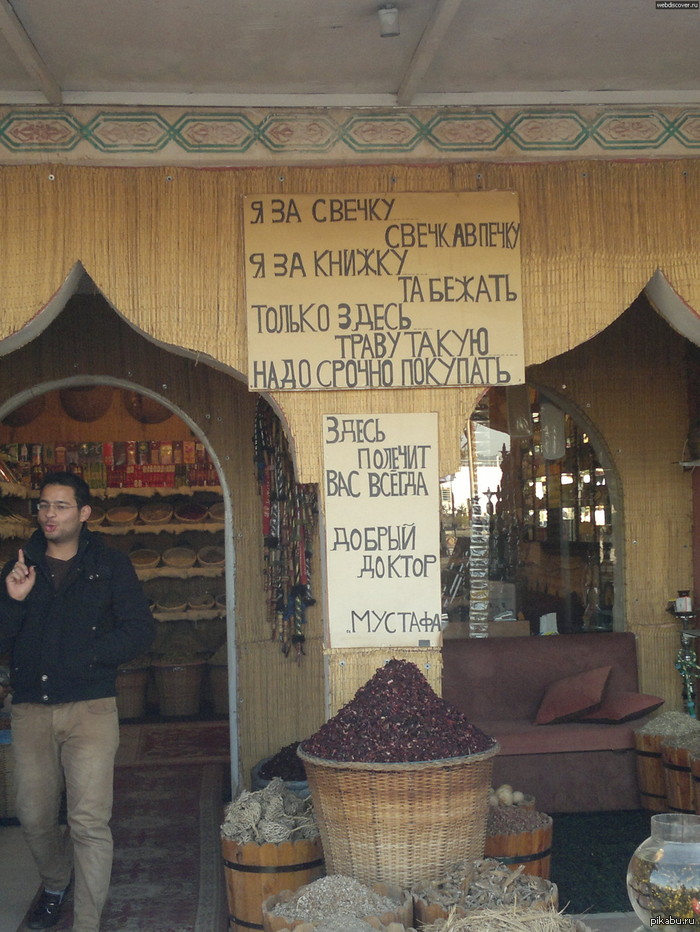 webdiscover.ru
Я ЗА СВЕЧКУ
СВЕЧКА В ПЕЧКУ
Я ЗА КНИЖКУ
ТА БЕЖАТЬ
ТОЛЬКО ЗДЕСЬ
ТРАВУ ТАКУЮ
НАДО СРОЧНО ПОКУПАТЬ
ЗДЕСЬ
ПОЛЕЧИТ
ВАС ВСЕГДА
ДОБРЫЙ
ДОКТОР
МУСТАФА
pikabu.ru